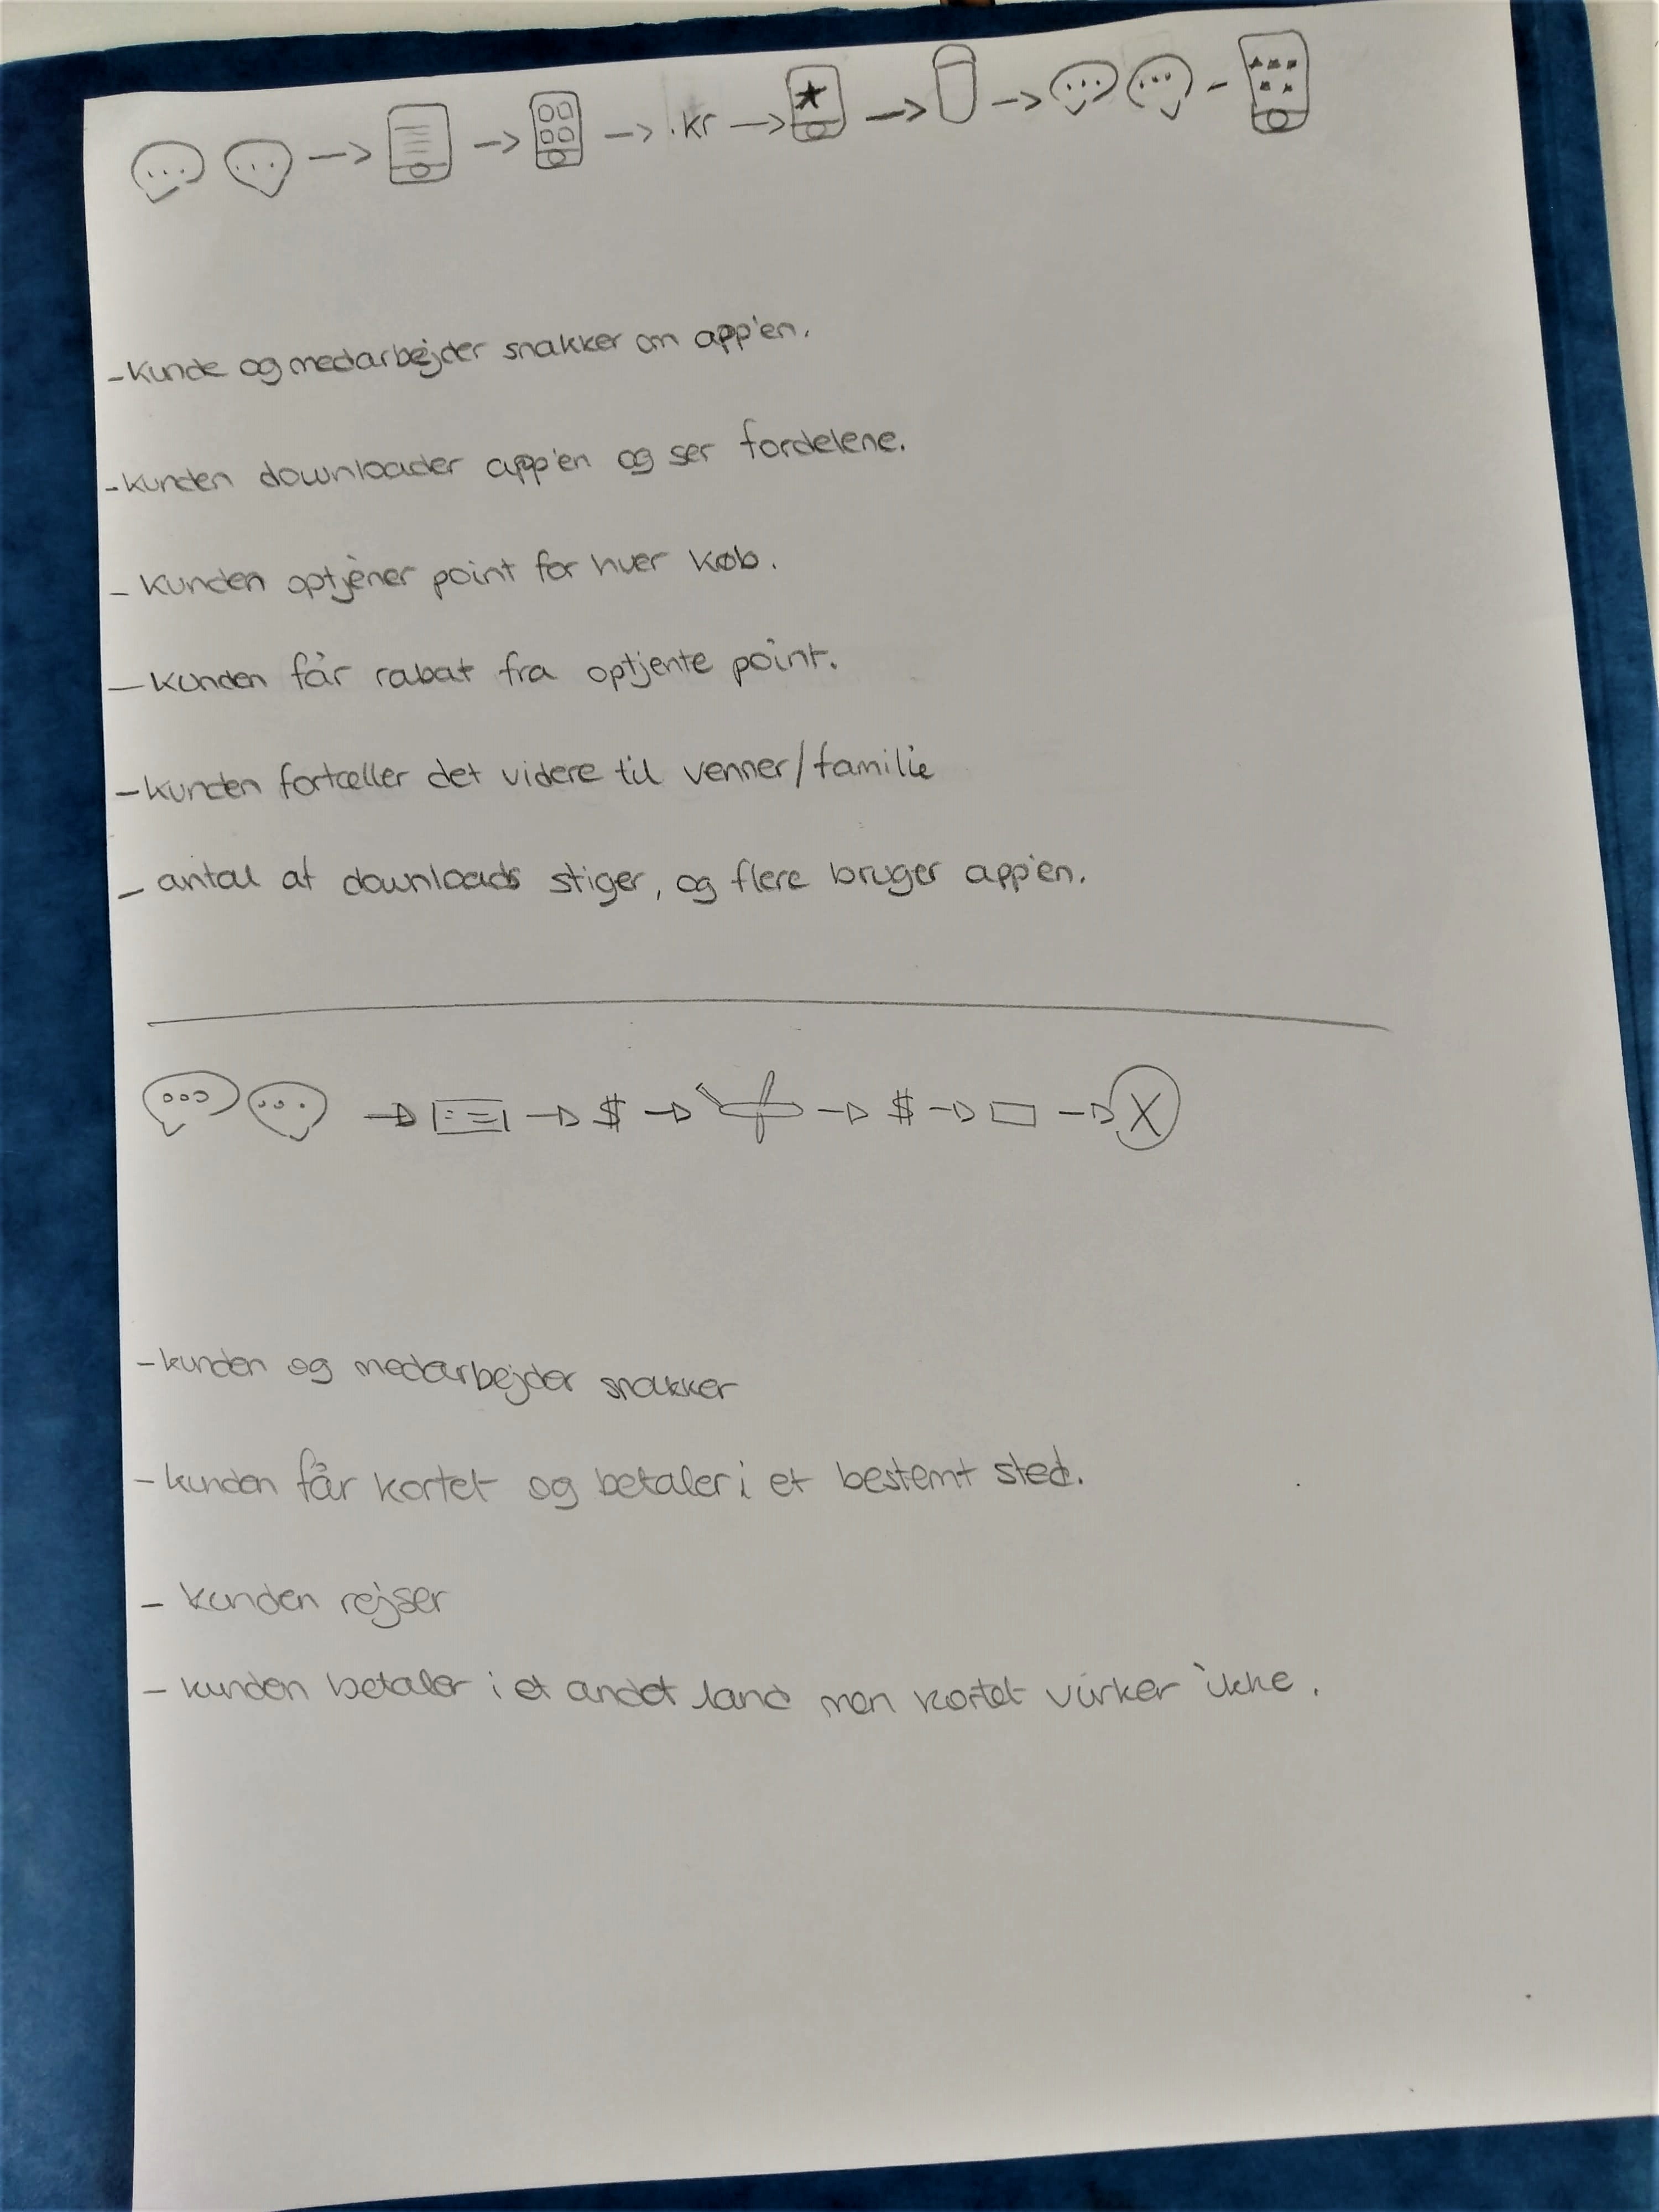 .kr
- Kunde og medarbejder snakker om app'en.
- Kunden downloader app'en og ser fordelene.
- Kunden optjener point for hver køb.
- Kunden får rabat fra optjente point.
- Kunden fortæller det videre til venner/familie
- antal af downloads stiger, og flere bruger app'en.
$ $ X
- kunden og medarbejder snakker
- kunden får kortet og betaler i et bestemt sted.
- kunden rejser
- kunden betaler i et andet land men kortet virker ikke.